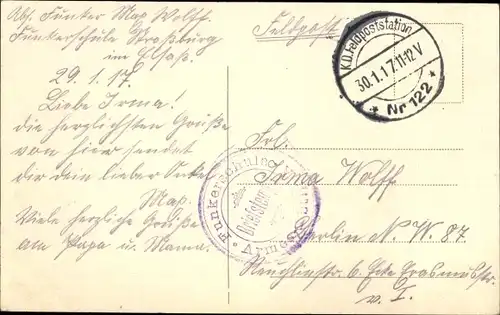 Abs. Funker Max Wolff.
Funkerschule Straßburg
im Elsaß.
29.1.17.
Liebe Irma!
die herzlichsten Grüße
von hier sendet
dir dein lieber Onkel
Max.
Viele herzliche Grüße
an Papa u. Mama.
Feldpost
K.D. Feldpoststation
30.1.17.11-12V
* Nr 122 *
Funkerschule
Briefstempel
Armee
Frl.
Irma Wolff
Berlin N. W. 87.
Reuchlinstr. 6. Ecke Erasmusstr.
v. I.